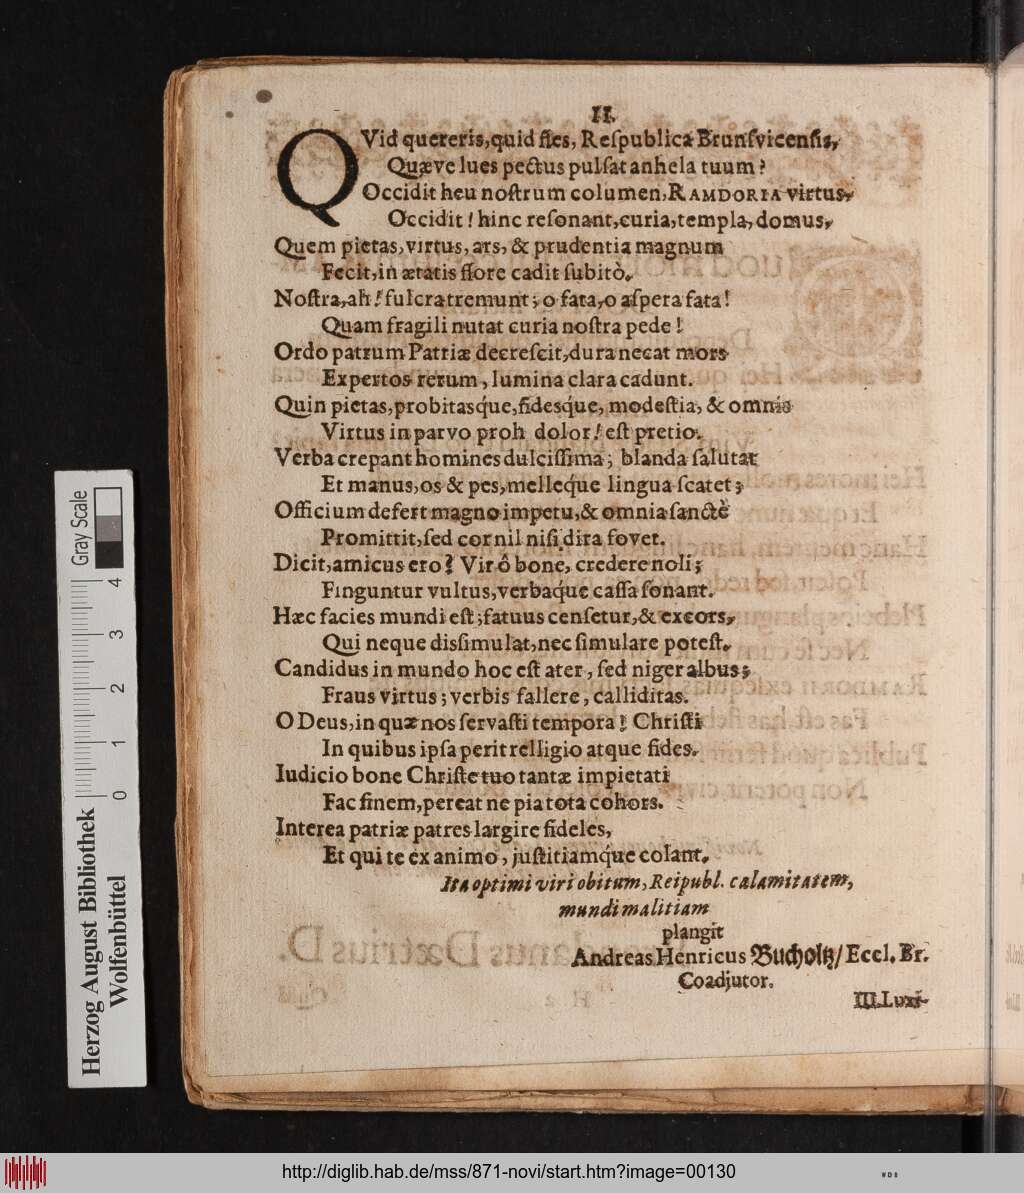 II.
QVid quereris, quid fles, Reſpublica Brunſvicenſis,
Quæve lues pectus pulſat anhela tuum?
Occidit heu noſtrum columen, RAMDORIA virtus,
Occidit! hinc reſonant, curia, templa, domus,
Quem pietas, virtus, ars, & prudentia magnum
Fecit, in ætatis flore cadit ſubitò.
Noſtra, ah! fulcra tremunt; o fata, o aſpera fata!
Quam fragili nutat curia noſtra pede!
Ordo patrum Patriæ decreſcit, dura necat mors
Expertos rerum, lumina clara cadunt.
Quin pietas, probitasq́ue, fidesq́ue, modeſtia, & omnis
Virtus in parvo proh dolor! eſt pretio.
Verba crepant homines dulciſſima; blanda ſalutat
Et manus, os & pes, melleq́ue lingua ſcatet;
Officium defert magno impetu, & omnia ſanctè
Promittit, ſed cor nil niſi dira fovet.
Dicit, amicus ero? Vir ô bone, credere noli;
Finguntur vultus, verbaq́ue caſſa ſonant.
Hæc facies mundi eſt; fatuus cenſetur, & excors,
Qui neque disſimulat, nec ſimulare poteſt.
Candidus in mundo hoc eſt ater, ſed niger albus;
Fraus virtus; verbis fallere, calliditas.
O Deus, in quæ nos ſervaſti tempora! Chriſti
In quibus ipſa perit relligio atque fides.
Iudicio bone Chriſte tuo tantæ impietati
Fac finem, pereat ne pia tota cohors.
Interea patriæ patres largire fideles,
Et qui te ex animo, juſtitiamq́ue colant.
Ita optimi viri obitum, Reipubl. calamitatem,
mundi malitiam
plangit
Andreas Henricus Bucholtz/ Eccl. Br.
Coadjutor.
III. Luxi-
Gray Scale
0 1 2 3 4
Herzog August Bibliothek
Wolfenbüttel
http://diglib.hab.de/mss/871-novi/start.htm?image=00130
WDB